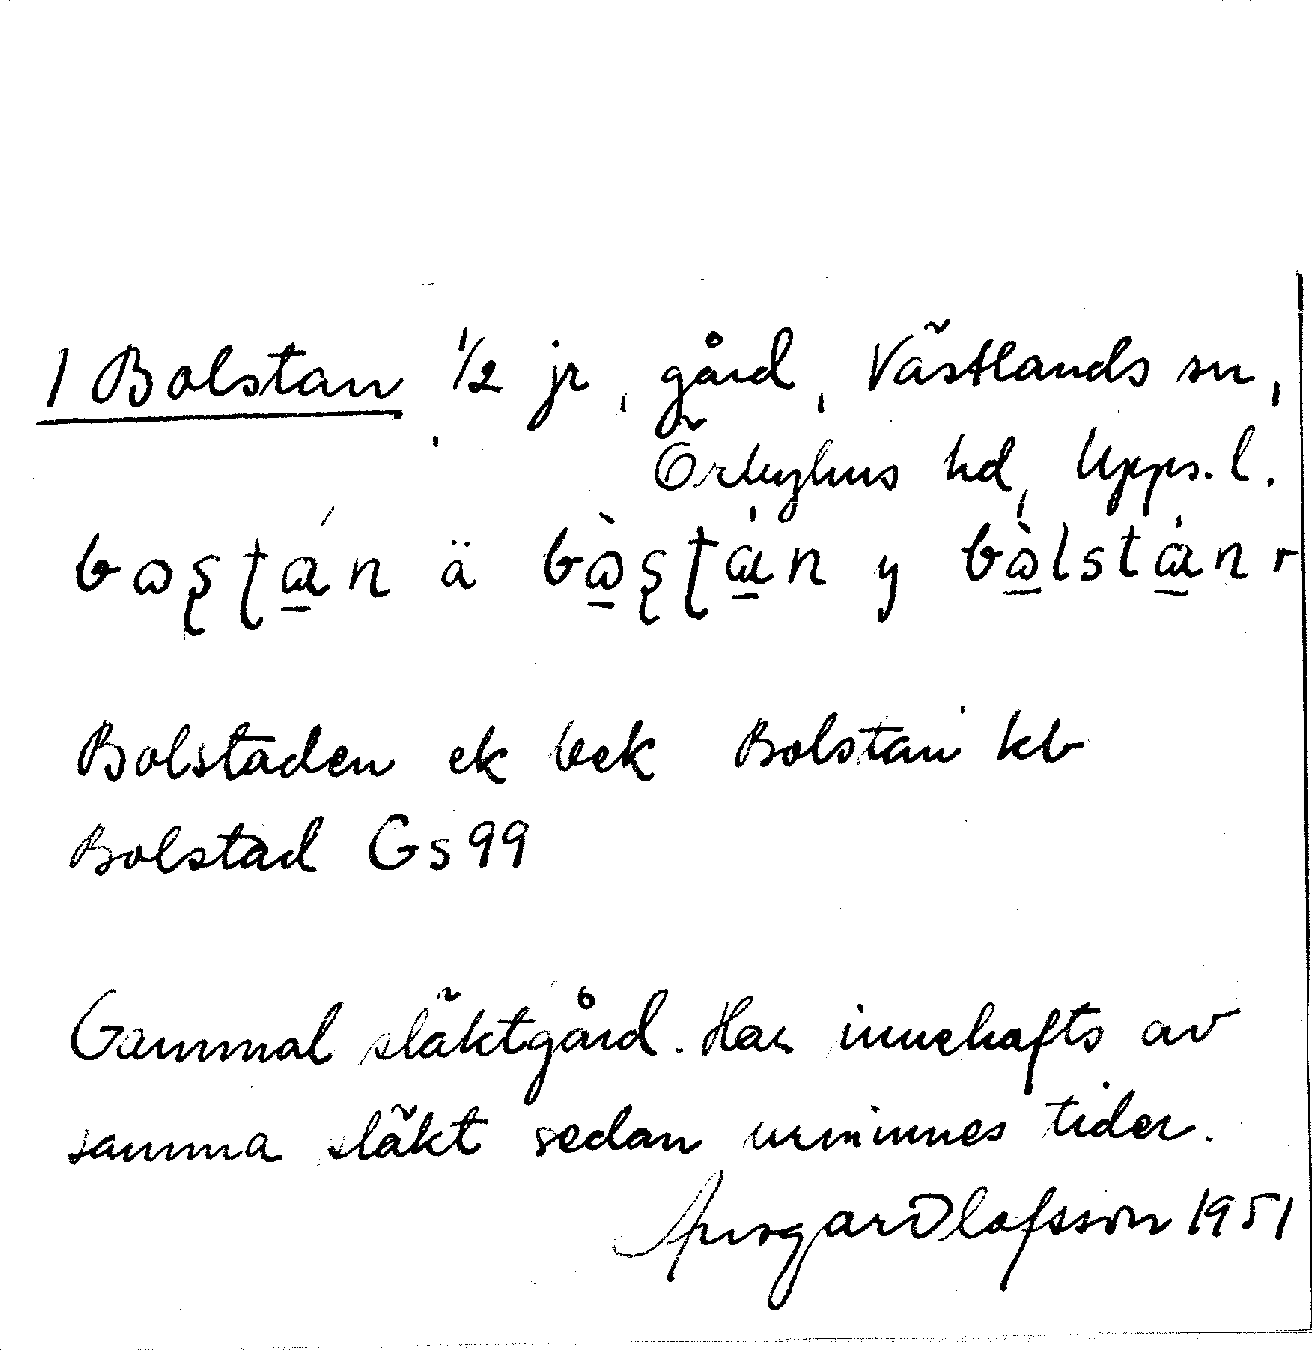 1 Bolstan 1/2 jr, gård, Västlands sn,
Örbyhus hd, Upps. l.
bɷʂʈά̱n ä bɷ̱̀ʂʈὰ̱n y bɷ̱̀lstὰ̱n r
Bolstaden ek bek Bolstan kb
Bolstad Gs 99
Gammal släktgård. Har innehafts av
samma släkt sedan urminnes tider.
Ansgar Olofsson 1951